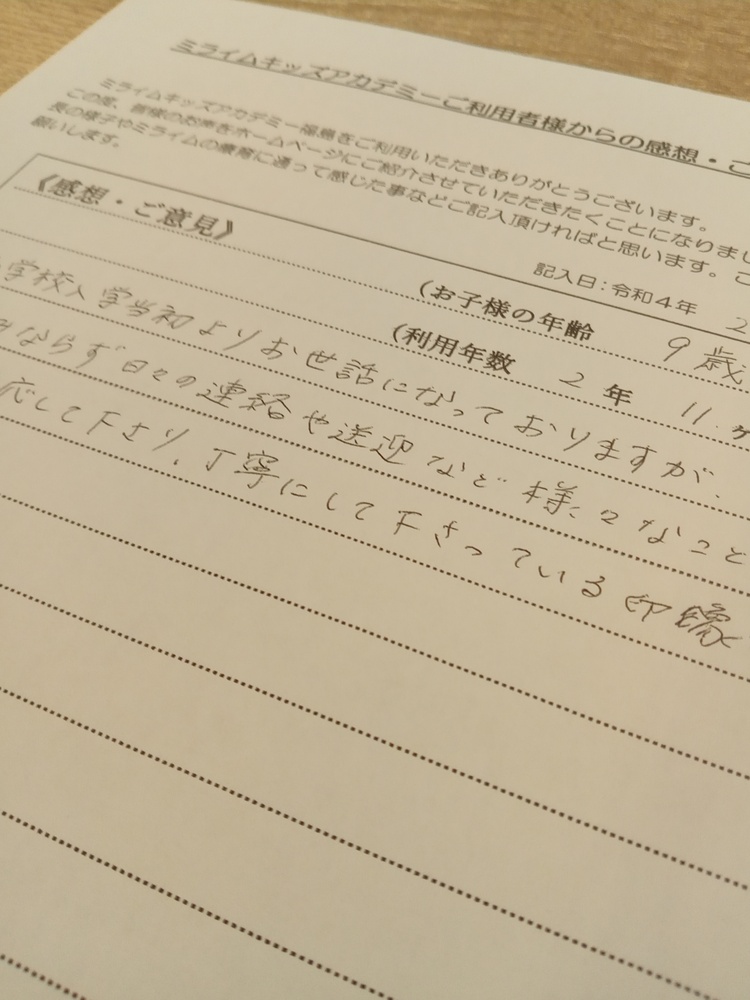 ミライムキッズアカデミーご利用者様からの感想・ご
ミライムキッズアカデミー福島をご利用いただきありがとうございます。
この度、皆様のお声をホームページにご紹介させていただきたくことになりまし
長の様子やミライムの療育に通って感じた事などご記入頂ければと思います。こ
願いします。
記入日:令和4年 2
《感想・ご意見》
(お子様の年齢 9歳
(利用年数 2年 11ヶ
学校入学当初よりお世話になっておりますが、
みならず日々の連絡や送迎など様々なこと
応して下さり、丁寧にして下さっている印象